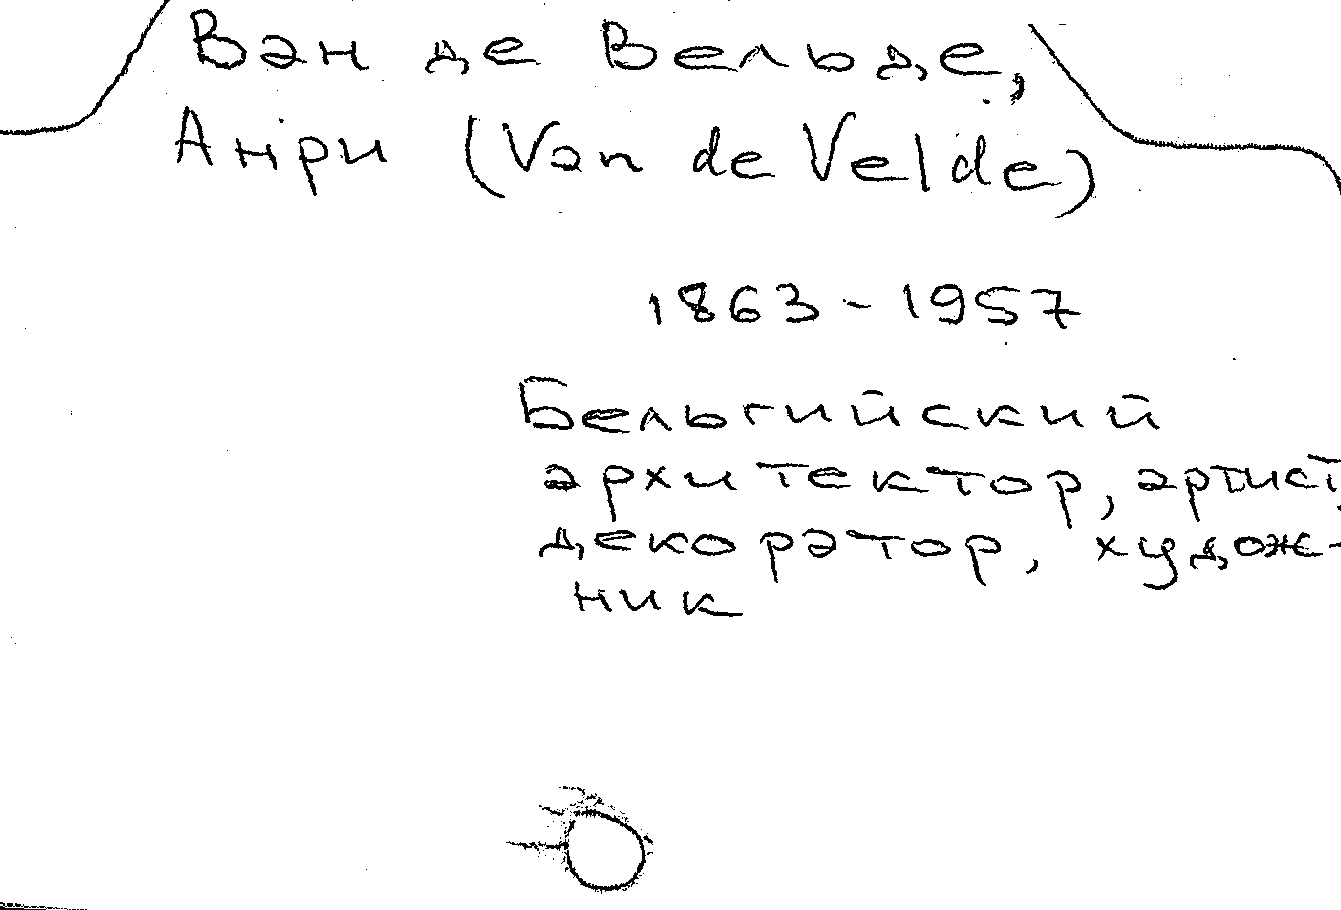 Ван де Вельде,
Анри (Van de Velde)
1863-1957
Бельгийский
архитектор, артист,
декоратор, худож-
ник